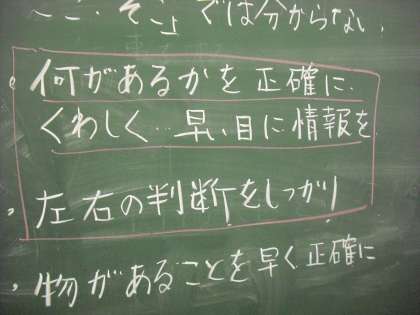 ここ、そこ」では分からない,
。何があるかを正確に.
くわしく…早い目に情報を
, 左右の判断をしっかり
, 物があることを早く正確に